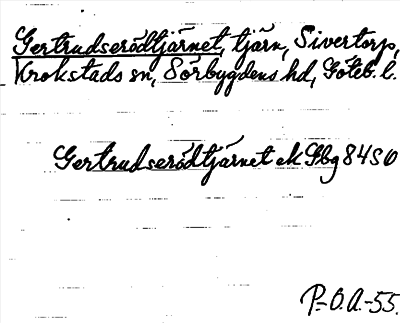 Gertrudserödtjärnet, tjärn, Sivertorp,
Krokstads sn, Sörbygdens hd, Göteb. l.
Gertrudserödtjärnet ek Gbg 84 SO
P.-O.A.-55.